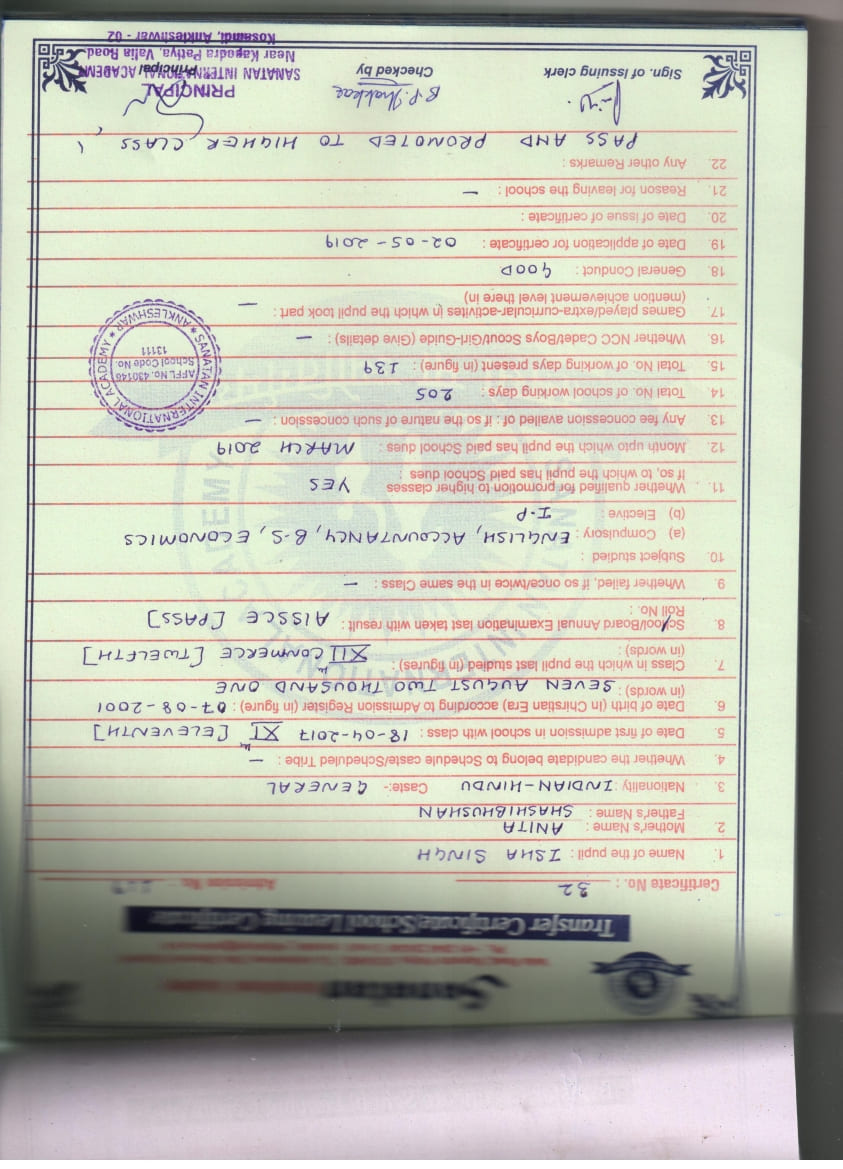 Sanatan
Transfer Certificate/School Leaving Certificate
Certificate No. : 32 Admission No. :
1. Name of the pupil : ISHA SINGH
2. Mother's Name : ANITA
Father's Name : SHASHIBHUSHAN
3. Nationality : INDIAN-HINDU Caste:- GENERAL
4. Whether the candidate belong to Schedule caste/Scheduled Tribe : —
5. Date of first admission in school with class : 18-04-2017 XI [ELEVENTH]
6. Date of birth (in Chirstian Era) according to Admission Register (in figure) : 07-08-2001
(in words) : SEVEN AUGUST TWO THOUSAND ONE
7. Class in which the pupil last studied (in figures) : XII COMMERCE [TWELFTH]
(in words) :
8. School/Board Annual Examination last taken with result : AISSCE [PASS]
Roll No. :
9. Whether failed, if so once/twice in the same Class : —
10. Subject studied :
(a) Compulsory : ENGLISH, ACCOUNTANCY, B-S, ECONOMICS
(b) Elective : I-P
11. Whether qualified for promotion to higher classes YES
If so, to which the pupil has paid School dues :
12. Month upto which the pupil has paid School dues : MARCH 2019
13. Any fee concession availed of : if so the nature of such concession : —
14. Total No. of school working days : 205
15. Total No. of working days present (in figure) : 139
16. Whether NCC Cadet/Boys Scout/Girl-Guide (Give details) : —
17. Games played/extra-curricular-activities in which the pupil took part : —
(mention achievement level there in)
18. General Conduct : GOOD
19. Date of application for certificate : 02-05-2019
20. Date of issue of certificate :
21. Reason for leaving the school : —
22. Any other Remarks :
PASS AND PROMOTED TO HIGHER CLASS
Sign. of Issuing clerk
B.P. Thakkar
Checked by
Principal
PRINCIPAL
SANATAN INTERNATIONAL ACADEMY
Near Kapodra Patiya, Valia Road
Kosamdi, Ankleshwar - 02
SANATAN INTERNATIONAL ACADEMY * ANKLESHWAR *
AFFL.No. 430146
School Code No.
13111
SANATAN INTERNATIONAL ACADEMY